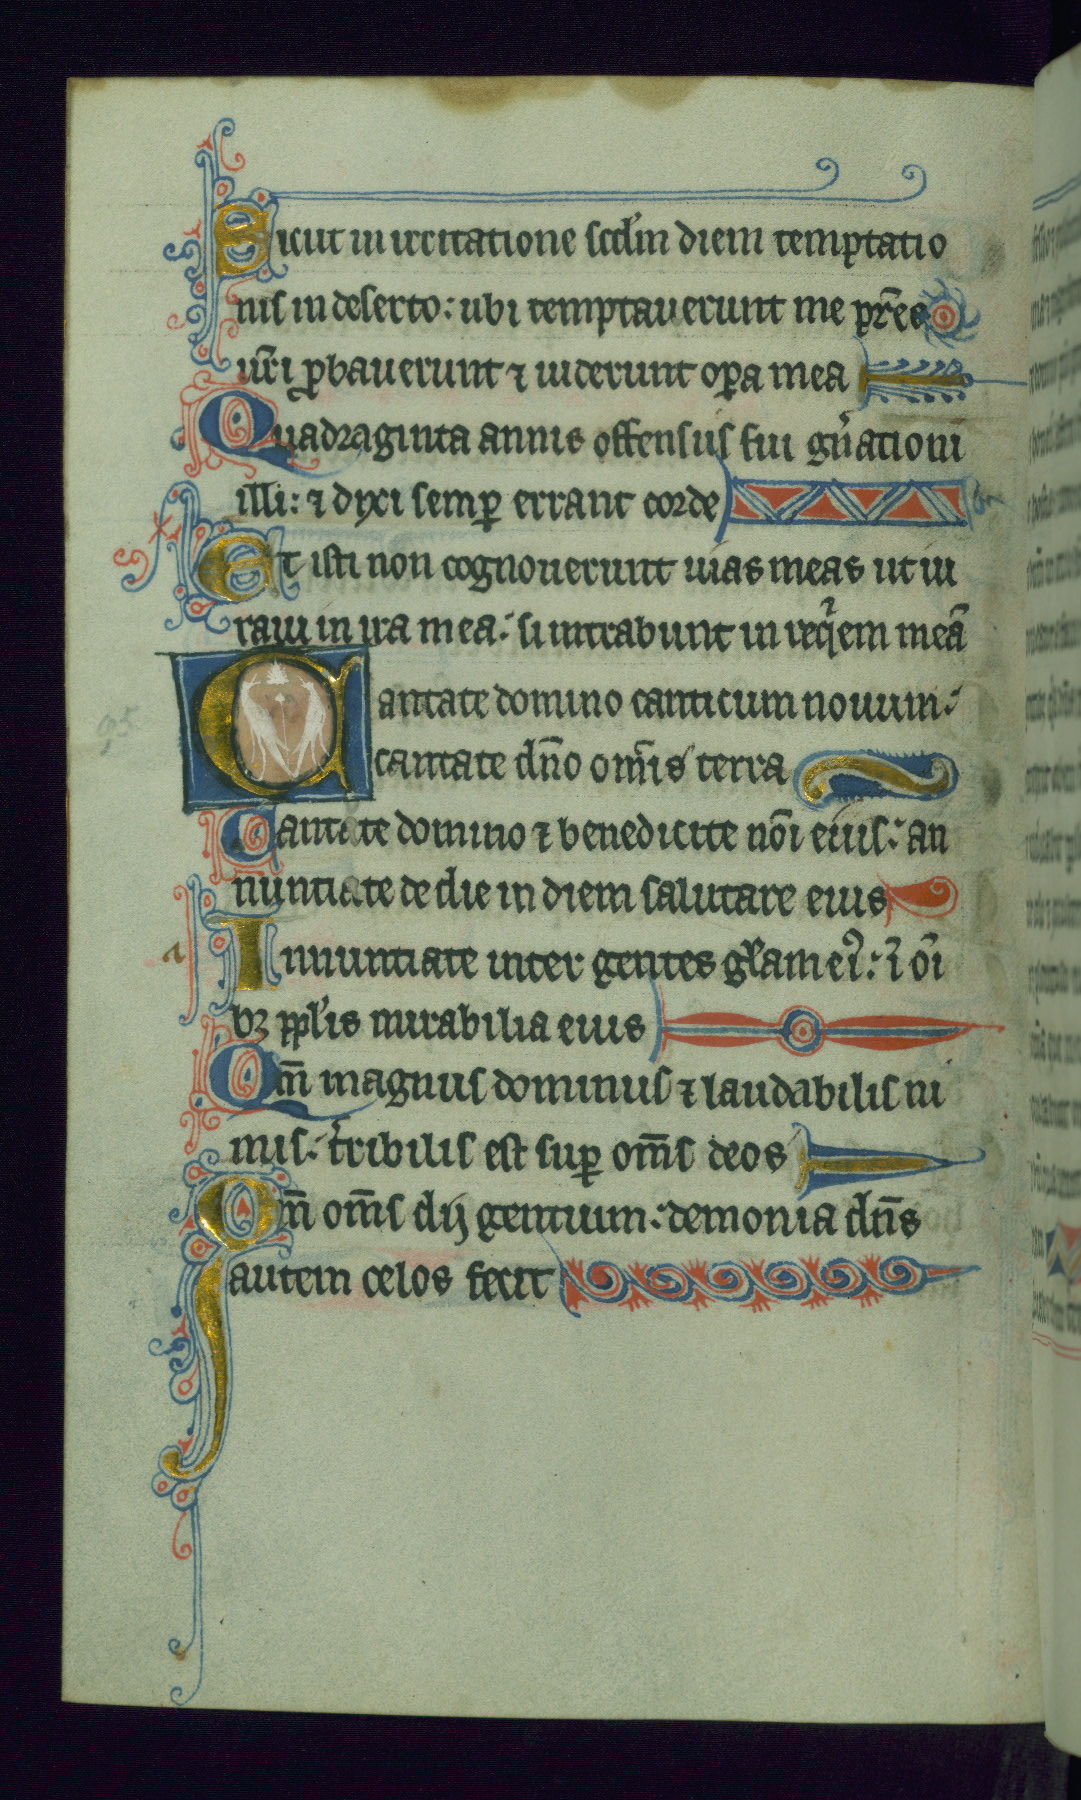 Sicut in irritatione scđm diem temptatio
nis in deserto: ubi temptaverunt me pr̄es
ur̄i ꝓbaverunt ⁊ viderunt oꝑa mea
Quadraginta annis offensus fui gn̄ationi
illi: ⁊ dixi semꝑ errant corde
Et isti non cognoverunt vias meas ut iu
ravi in ira mea: si intrabunt in req̄em meā
Cantate domino canticum novum:
cantate dn̄o om̄is terra
95
Cantate domino ⁊ benedicite nōi eius: an
nuntiate de die in diem salutare eius
a
Innuntiate inter gentes gl̄am eiꝰ: ī oī
bꝫ ppl̄is mirabilia eius
Qm̄ magnus dominus ⁊ laudabilis ni
mis: t̄ribilis est suꝑ om̄s deos
Qm̄ om̄s dij gentium: demonia dn̄s
autem celos fecit